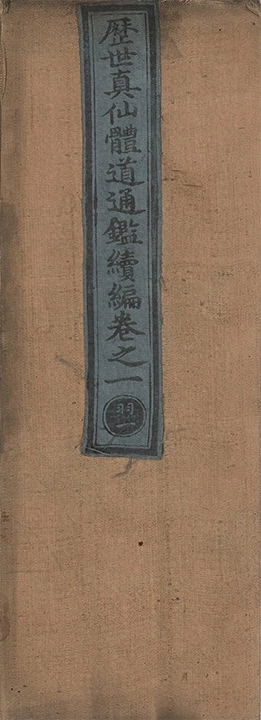 歷世真仙體道通鑑續編卷之一
羽一